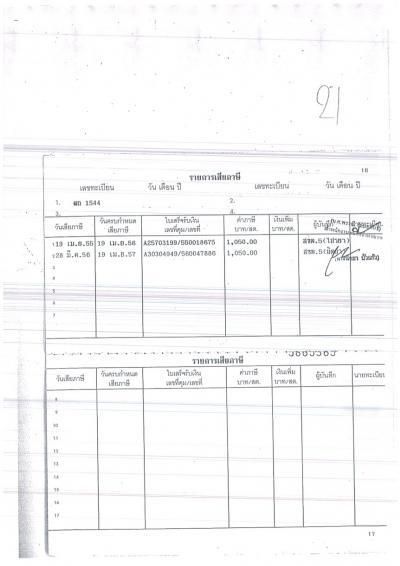 21
16
รายการเสียภาษี
เลขทะเบียน วัน เดือน ปี เลขทะเบียน วัน เดือน ปี
1. ผถ 1544 2.
3. 4.
วันเสียภาษี วันครบกำหนดเสียภาษี ใบเสร็จรับเงิน เลขที่คุม/เลขที่ ค่าภาษี บาท/สต. เงินเพิ่ม บาท/สต. ผู้บันทึก
19 เม.ย.55 19 เม.ย.56 A25703199/550018675 1,050.00 สขต.5
28 มี.ค.56 19 เม.ย.57 A30304949/560047886 1,050.00 สขต.5
4
5
6
7
รายการเสียภาษี
วันเสียภาษี วันครบกำหนดเสียภาษี ใบเสร็จรับเงิน เลขที่คุม/เลขที่ ค่าภาษี บาท/สต. เงินเพิ่ม บาท/สต. ผู้บันทึก นายทะเบียน
8
9
10
11
12
13
14
15
16
17
17